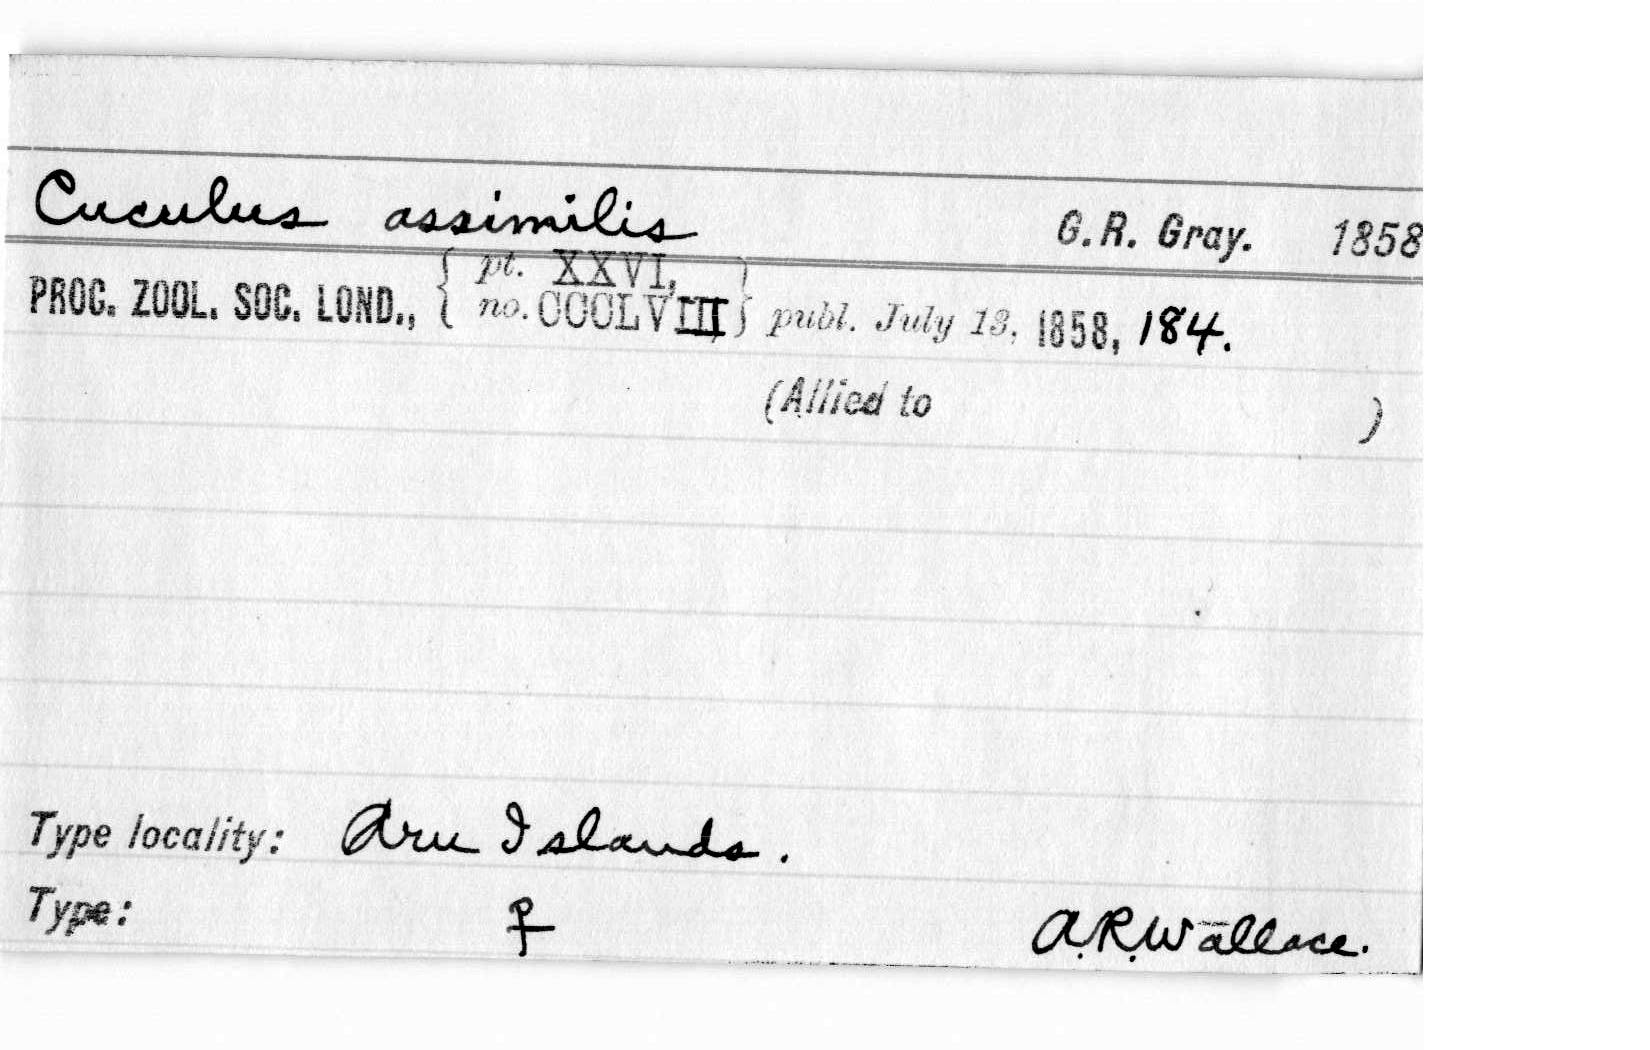 Cuculus assimilis G. R. Gray. 1858
PROC. ZOOL. SOC. LOND., { pt. XXVI, no. CCCLVIII } publ. July 13, 1858, 184.
(Allied to )
Type locality: Aru Islands.
Type: ♀ A.R.Wallace.